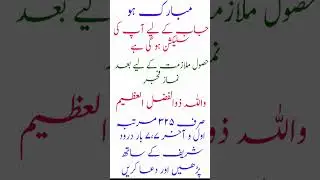 مبارک ہو
جاب کے لیے آپ کی
سلیکشن ہو گئی ہے
حصول ملازمت کے لیے بعد
نماز فجر
واللہ ذوالفضل العظیم
صرف ۳۲۵ مرتبہ
اول و آخر ۷،۷ بار درود
شریف کے ساتھ
پڑھیں اور دعا کریں